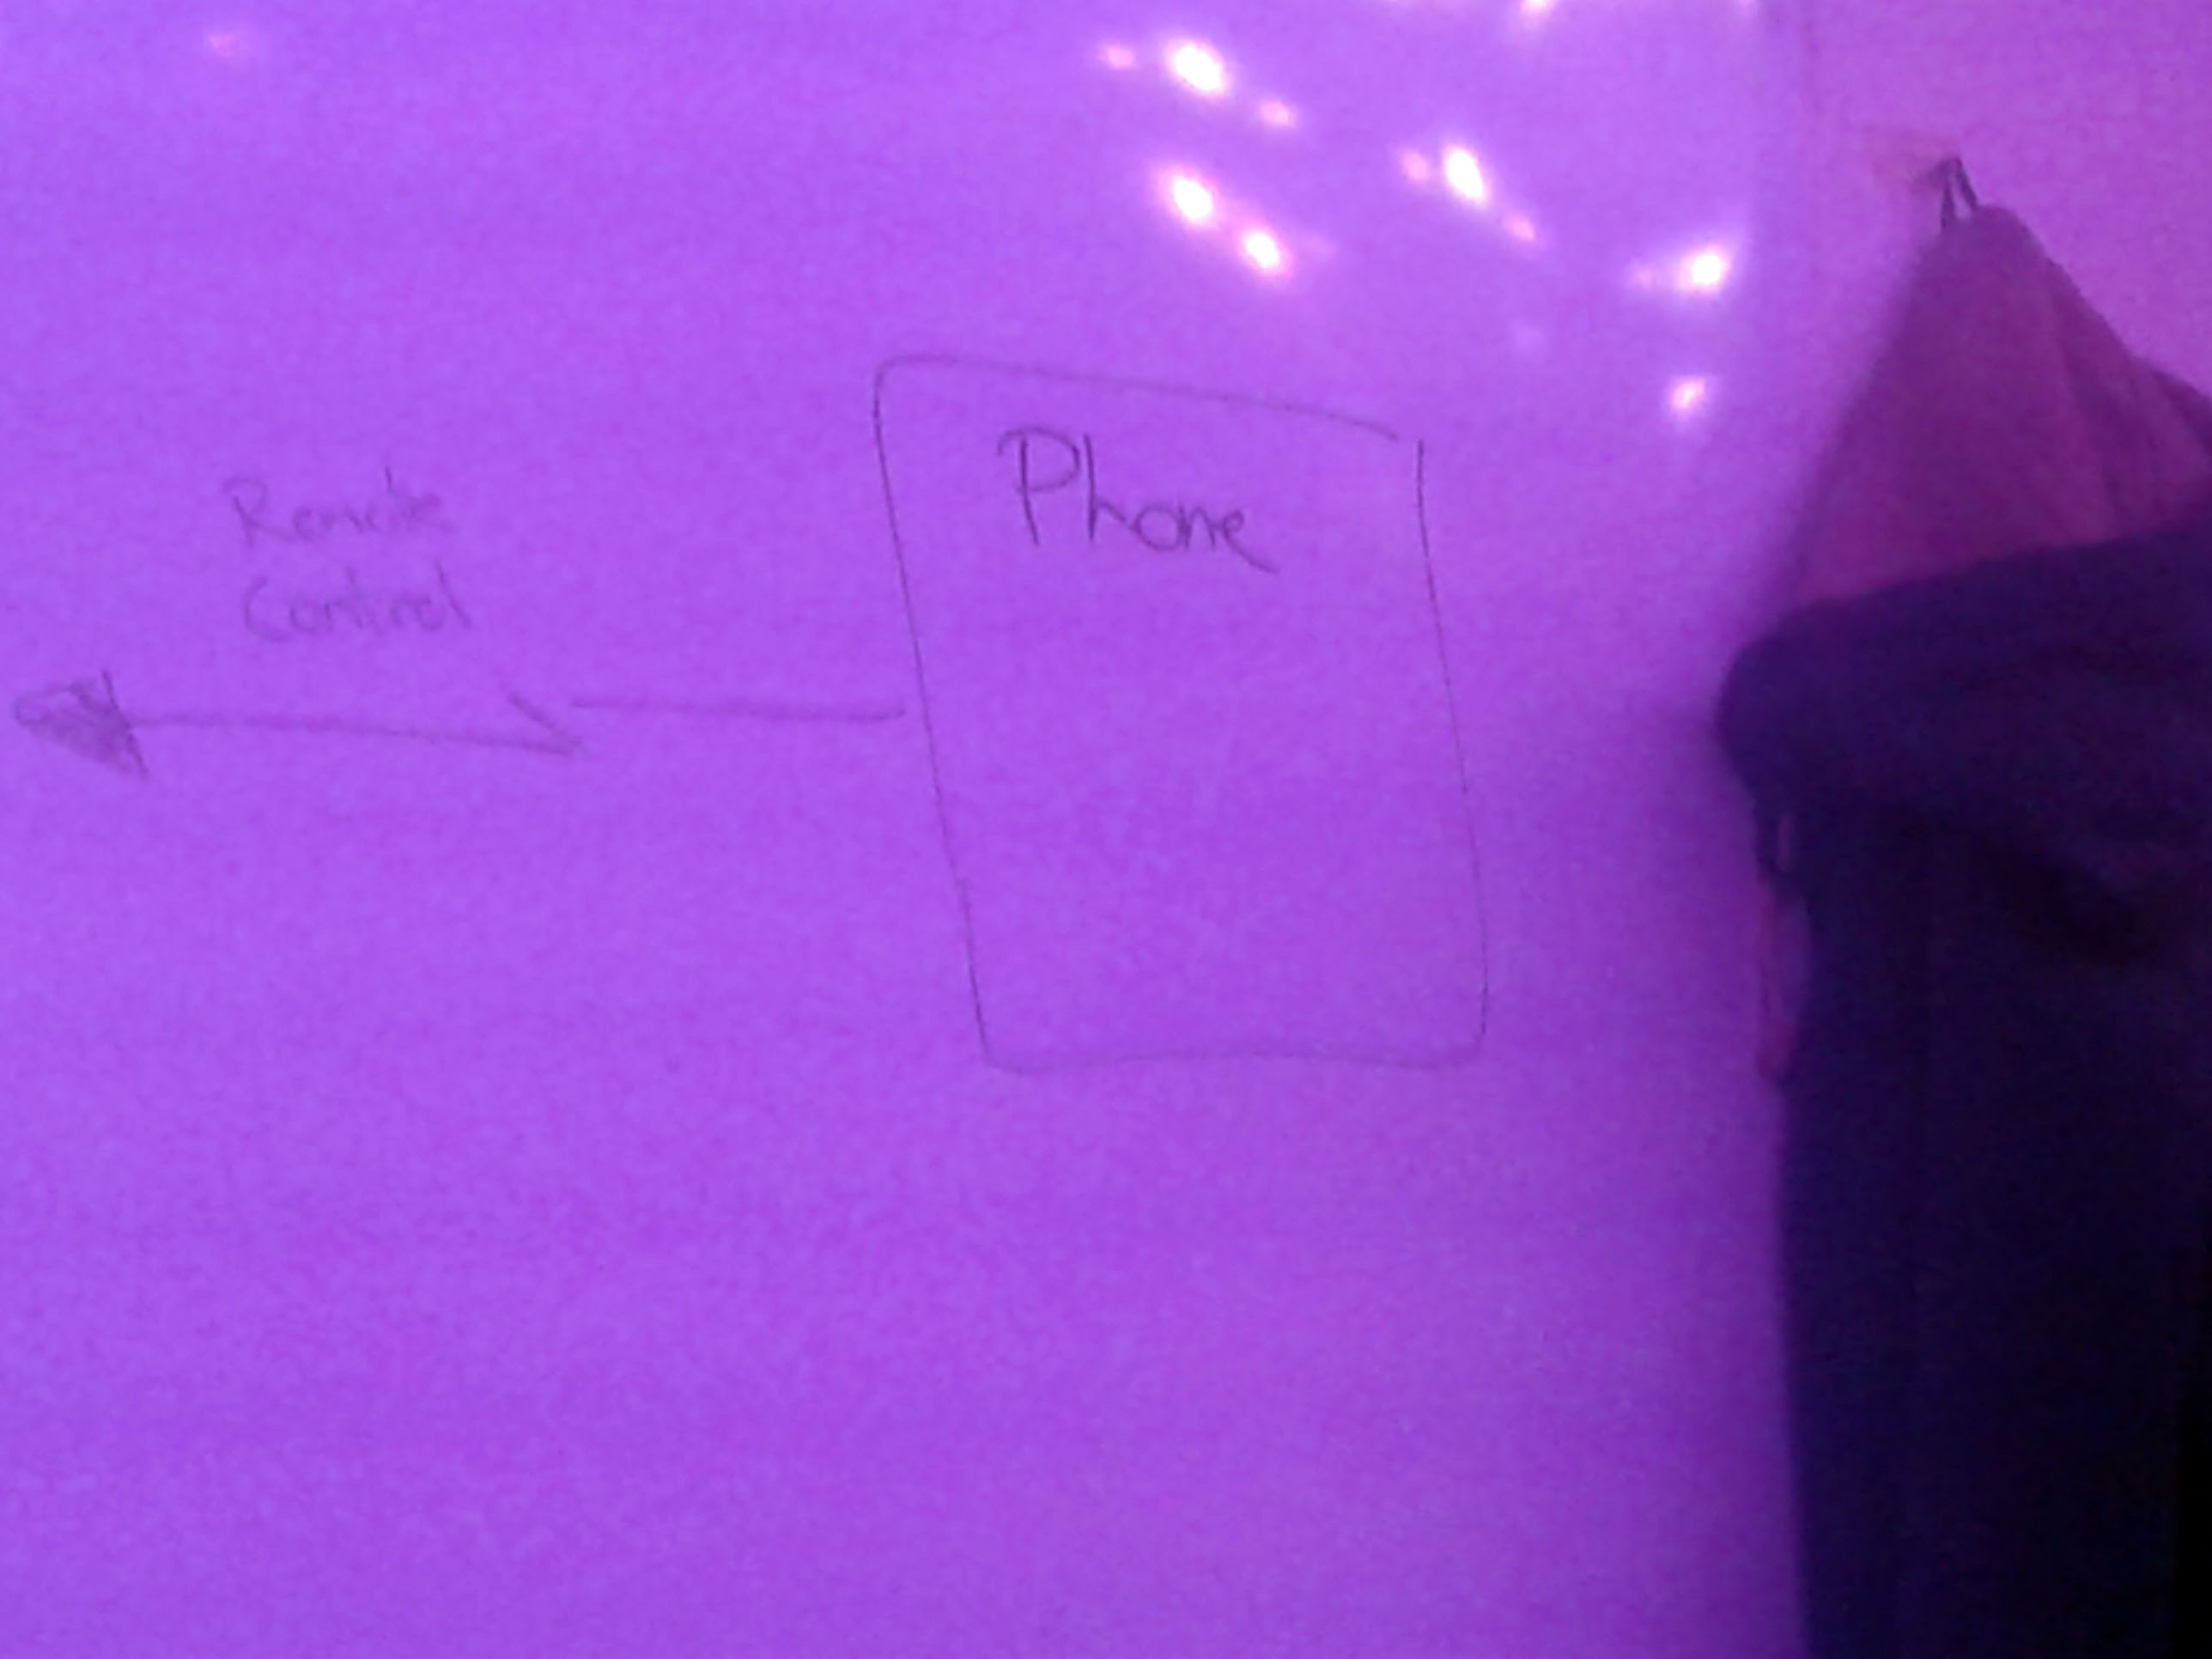 Remote
Control
Phone